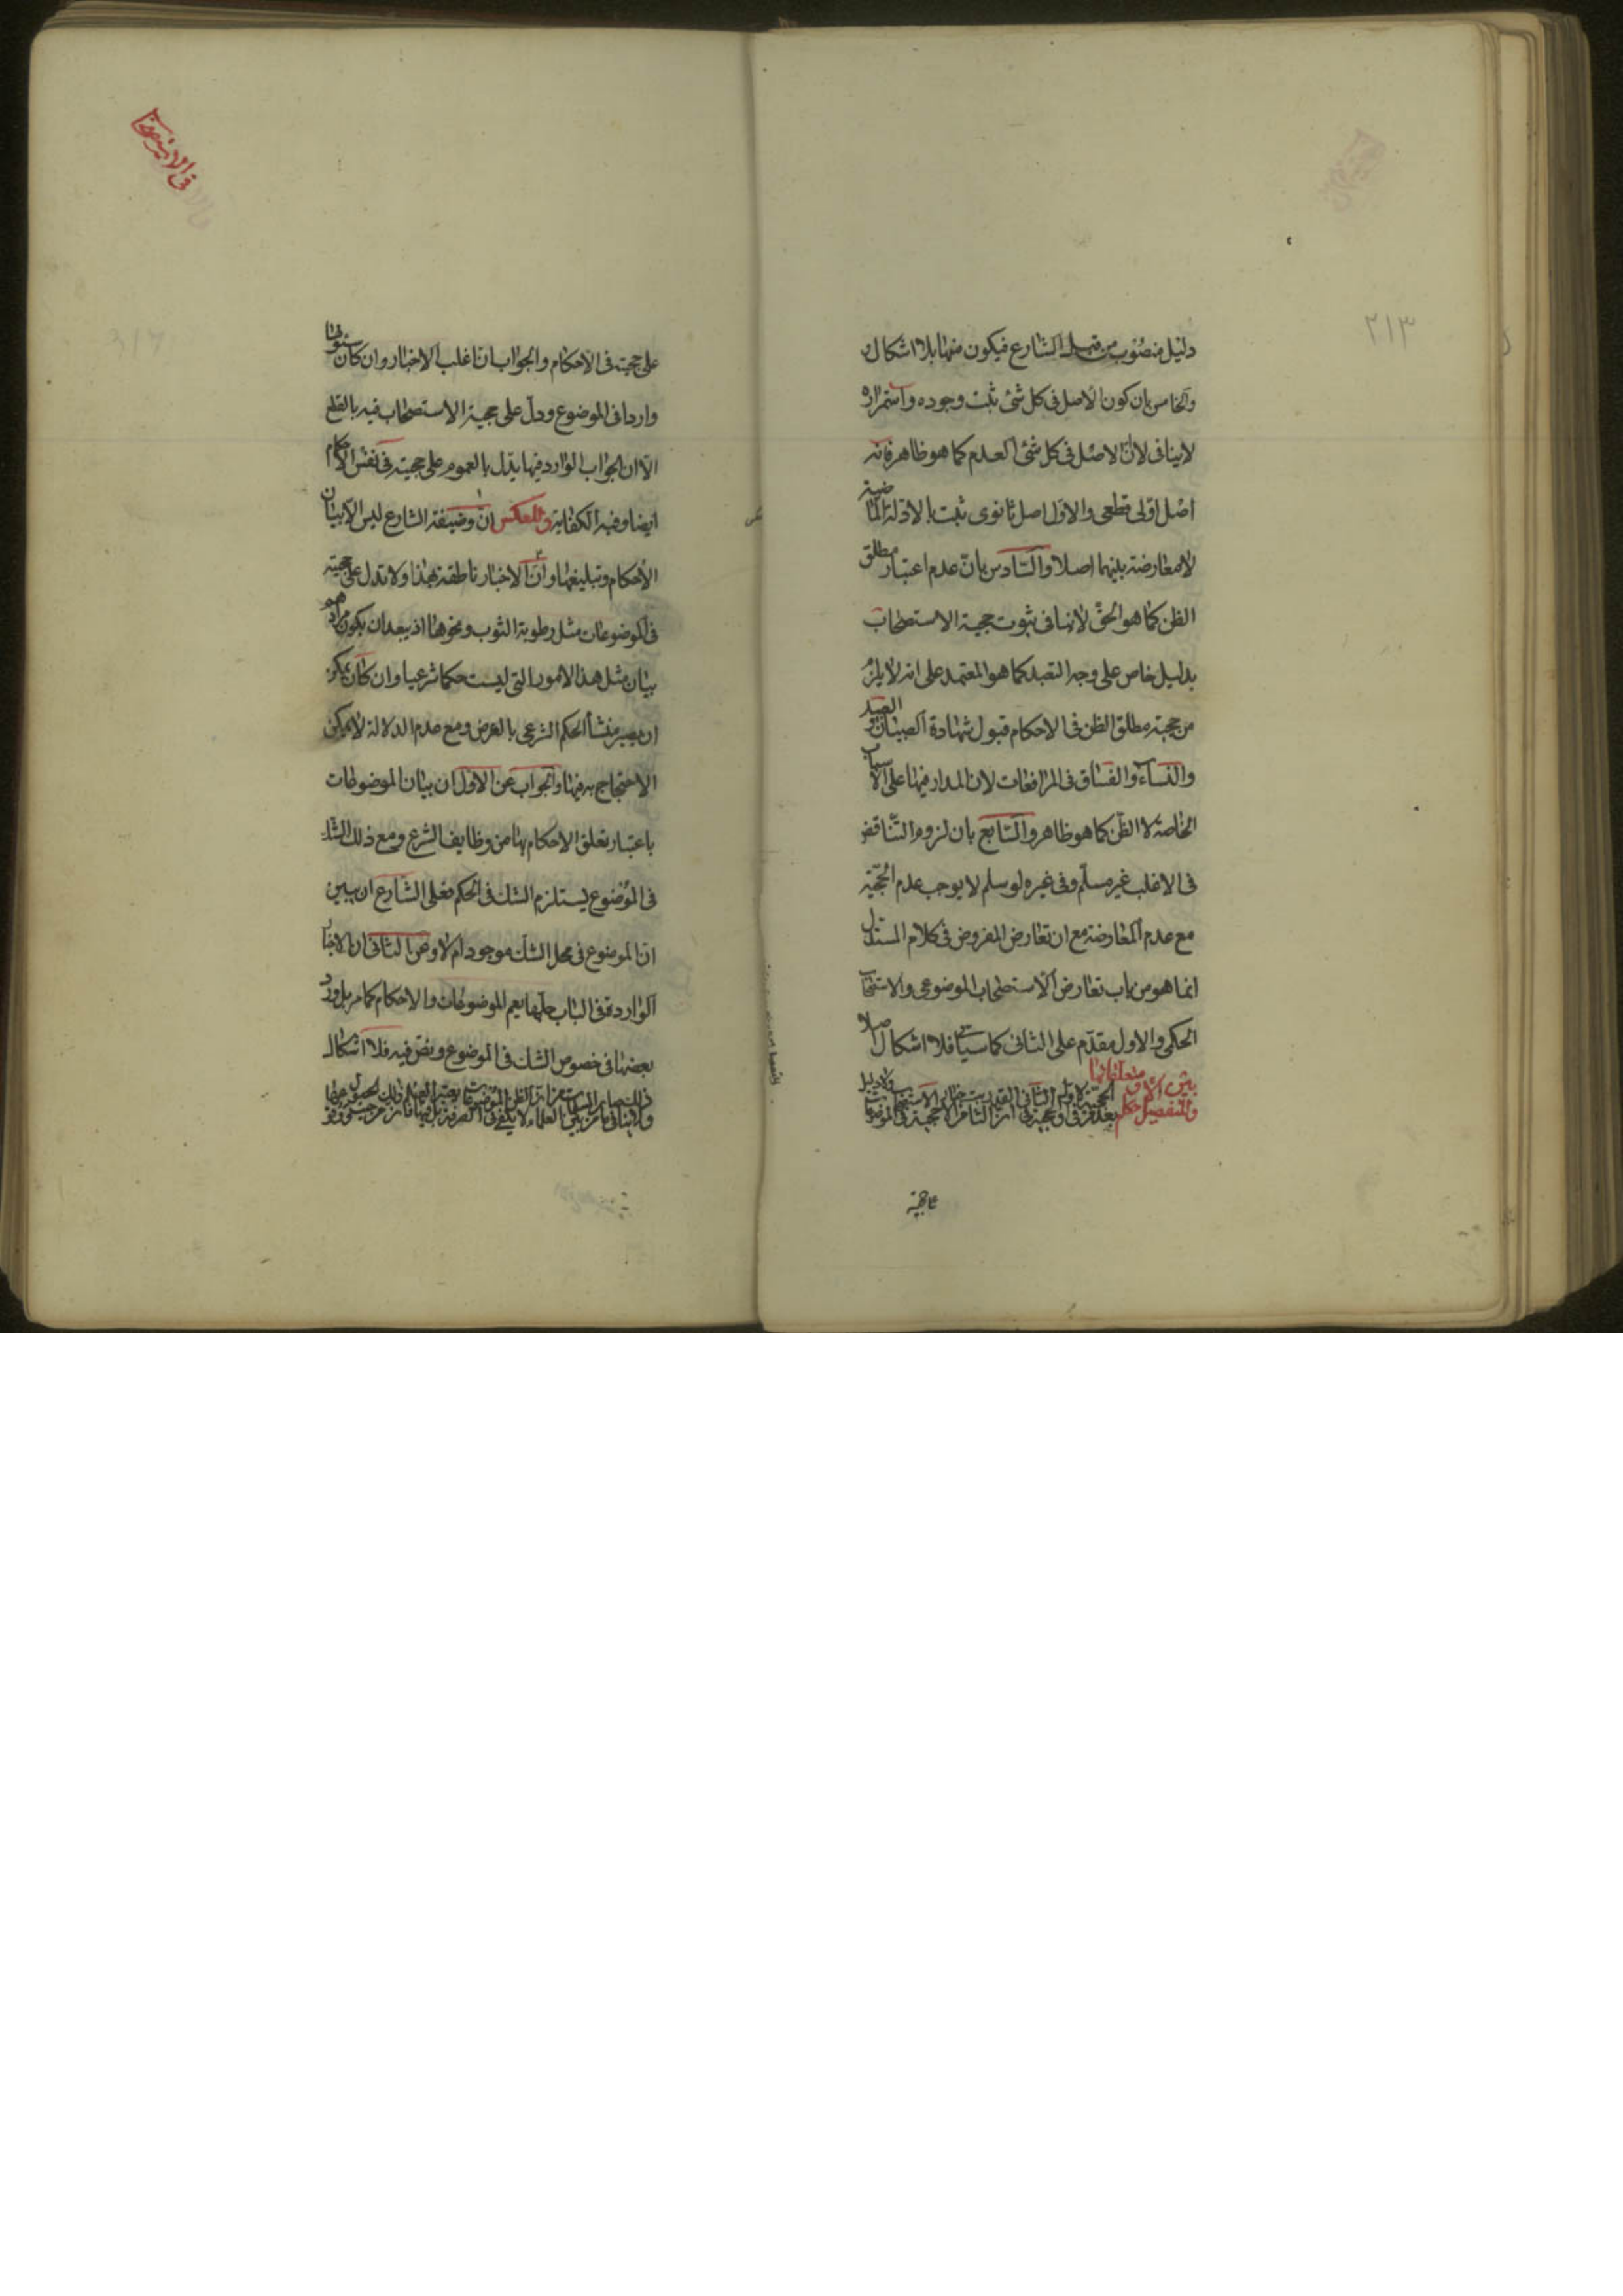 ٢١٣
دليل منصوب من قبل الشارع فيكون منها بلا اشكال
والخامس بان كون الاصل فى كل شئ ثبت وجوده واستمراره
لاينافى لان الاصل فى كل شئ العدم كما هو ظاهر فانه
اصل اولى قطعى والاول اصل ثانوى ثبت بالادلة الماضية
لامعارضة بينهما اصلا والسادس بان عدم اعتبار مطلق
الظن كما هو الحق لاينافى ثبوت حجية الاستصحاب
بدليل خاص على وجه التعبد كما هو المعتمد على انه لايلزم
من حجية مطلق الظن فى الاحكام قبول شهادة الصبيان والعبيد
والنساء والفساق فى المرافعات لان المدار فيها على الاسباب
الخاصة لا الظن كما هو ظاهر والسابع بان لزوم التناقض
فى الاغلب غير مسلم وفى غيره لو سلم لا يوجب عدم الحجية
مع عدم المعارضة مع ان تعارض المفروض فى كلام المستدل
انما هو من باب تعارض الاستصحاب الموضوعى والاستصحاب
الحكمى والاول مقدم على الثانى كما سياتى فلا اشكال اصلا
وللمفصل
ما حجية
فى الاستصحاب
على حجيته فى الاحكام والجواب ان اغلب الاخبار وان كان
واردا فى الموضوع ودل على حجية الاستصحاب فيه بالقطع
الا ان الجواب الوارد فيها يدل بالعموم على حجيته فى نفس الاحكام
ايضا وفيه الكفاية وللعكس ان وضيفة الشارع ليس الا بيان
الاحكام وتبليغها وان الاخبار ناطقة بهذا ولا تدل على حجيته
فى الموضوعات مثل رطوبة الثوب ونحوها اذ يبعد ان يكون مرادهم
بيان مثل هذا الامور التى ليست حكما شرعيا وان كان يمكن
ان يصير منشأ الحكم الشرعى بالعرض ومع عدم الدلالة لايمكن
الاحتجاج به فيها والجواب عن الاول ان بيان الموضوعات
باعتبار تعلق الاحكام بها من وظايف الشرع ومع ذلك الشك
فى الموضوع يستلزم الشك فى الحكم فعلى الشارع ان يبين
ان الموضوع فى محل الشك موجود ام لا وعن الثانى ان الاخبار
الواردة فى الباب جلها يعم الموضوعات والاحكام كما مر بل ورد
بعضها فى خصوص الشك فى الموضوع ونص فيه فلا اشكال